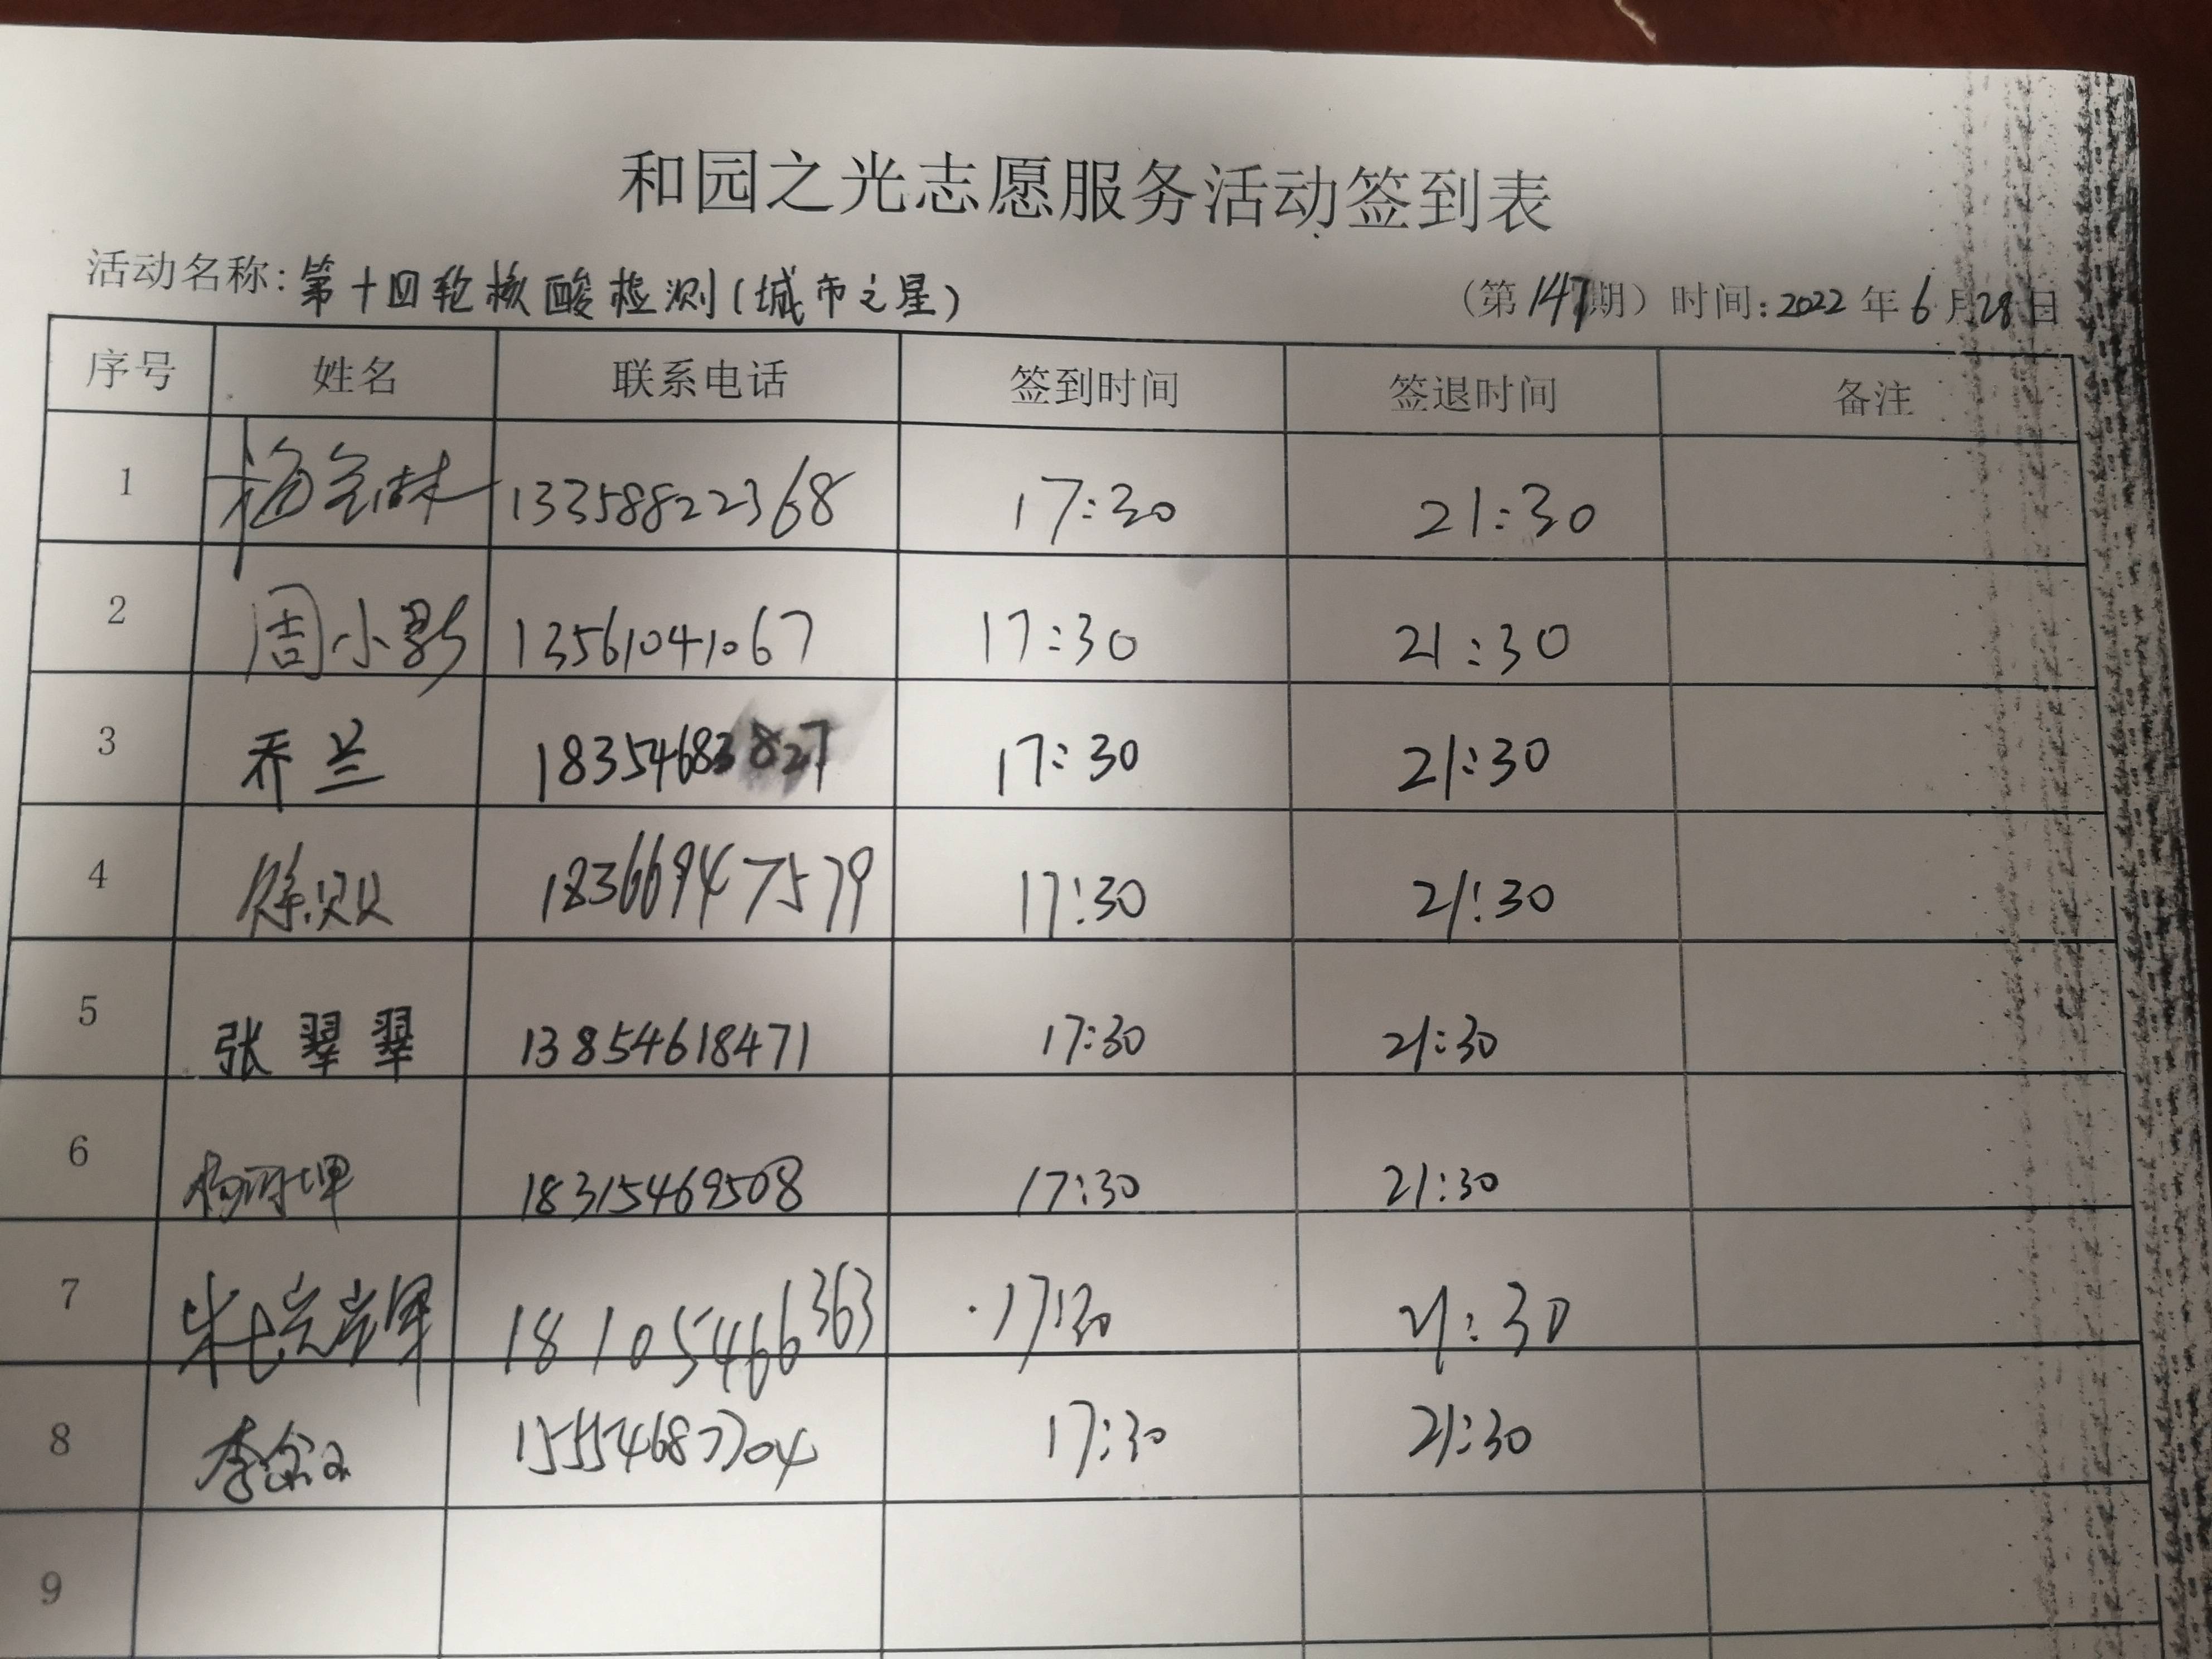 和园之光志愿服务活动签到表
活动名称:第十四轮核酸检测(城市之星) (第147期)时间:2022年6月28日
序号 姓名 联系电话 签到时间 签退时间 备注
1 13358822368 17:30 21:30
2 周小影 13561041067 17:30 21:30
3 乔兰 18354683827 17:30 21:30
4 18366947579 17:30 21:30
5 张翠翠 13854618471 17:30 21:30
6 18315469508 17:30 21:30
7 18105466363 17:30 21:30
8 李 15554687704 17:30 21:30
9